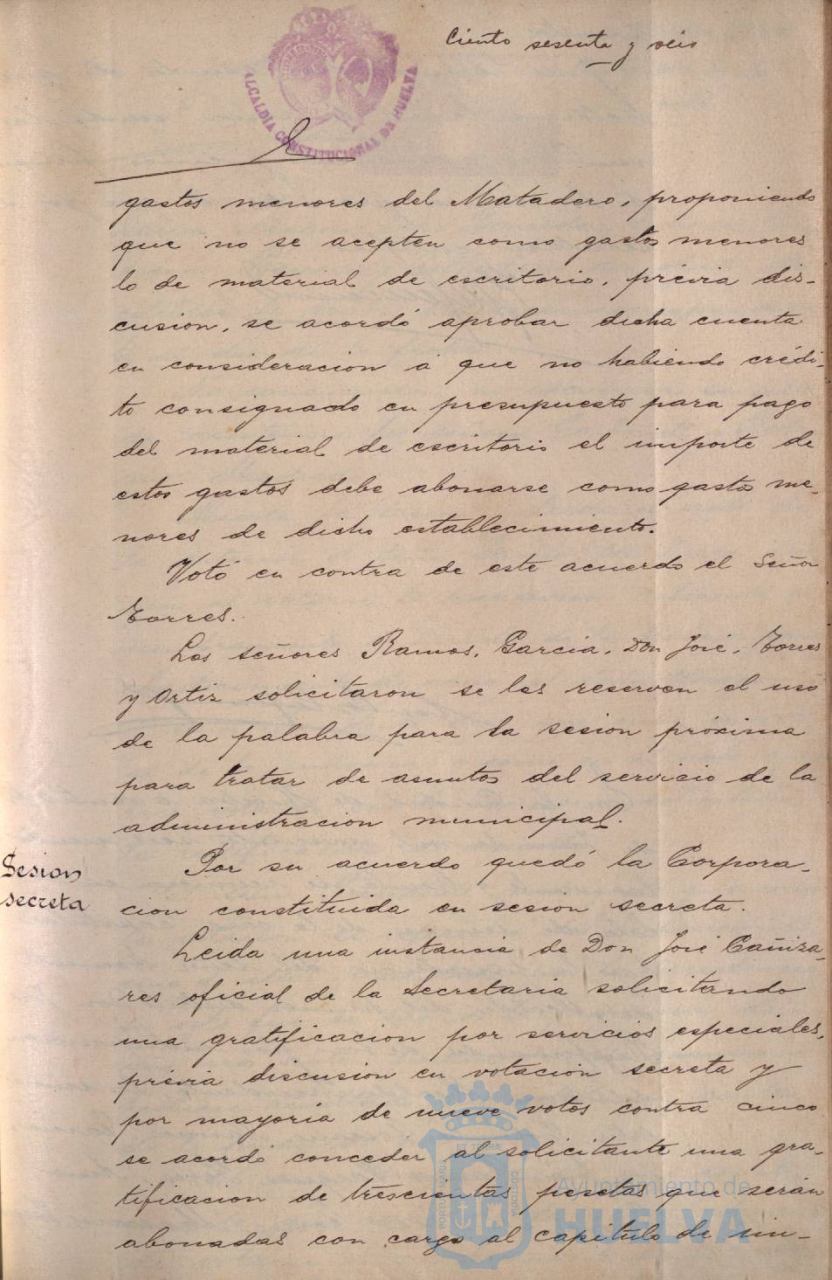 Ciento sesenta y seis
ALCALDIA CONSTITUCIONAL DE HUELVA
gastos menores del Matadero, proponiendo
que no se acepten como gastos menores
lo de material de escritorio, prévia dis-
cusion, se acordó aprobar dicha cuenta
en consideracion á que no habiendo crédi-
to consignado en presupuesto para pago
del material de escritorio el importe de
estos gastos debe abonarse como gastos me-
nores de dicho establecimiento.
Votó en contra de este acuerdo el Señor
Torres.
Los señores Ramos, Garcia, Don José, Torres
y Ortiz solicitaron se les reserven el uso
de la palabra para la sesion próxima
para tratar de asuntos del servicio de la
administracion municipal.
Sesion
secreta
Por su acuerdo quedó la Corpora-
cion constituida en sesion secreta.
Leida una instancia de Don José Cañiza-
res oficial de la Secretaria solicitando
una gratificacion por servicios especiales,
prévia discusion en votacion secreta y
por mayoria de nueve votos contra cinco
se acordó conceder al solicitante una gra-
tificacion de trescientas pesetas que serán
abonadas con cargo al capitulo de im-
Ayuntamiento de
HUELVA